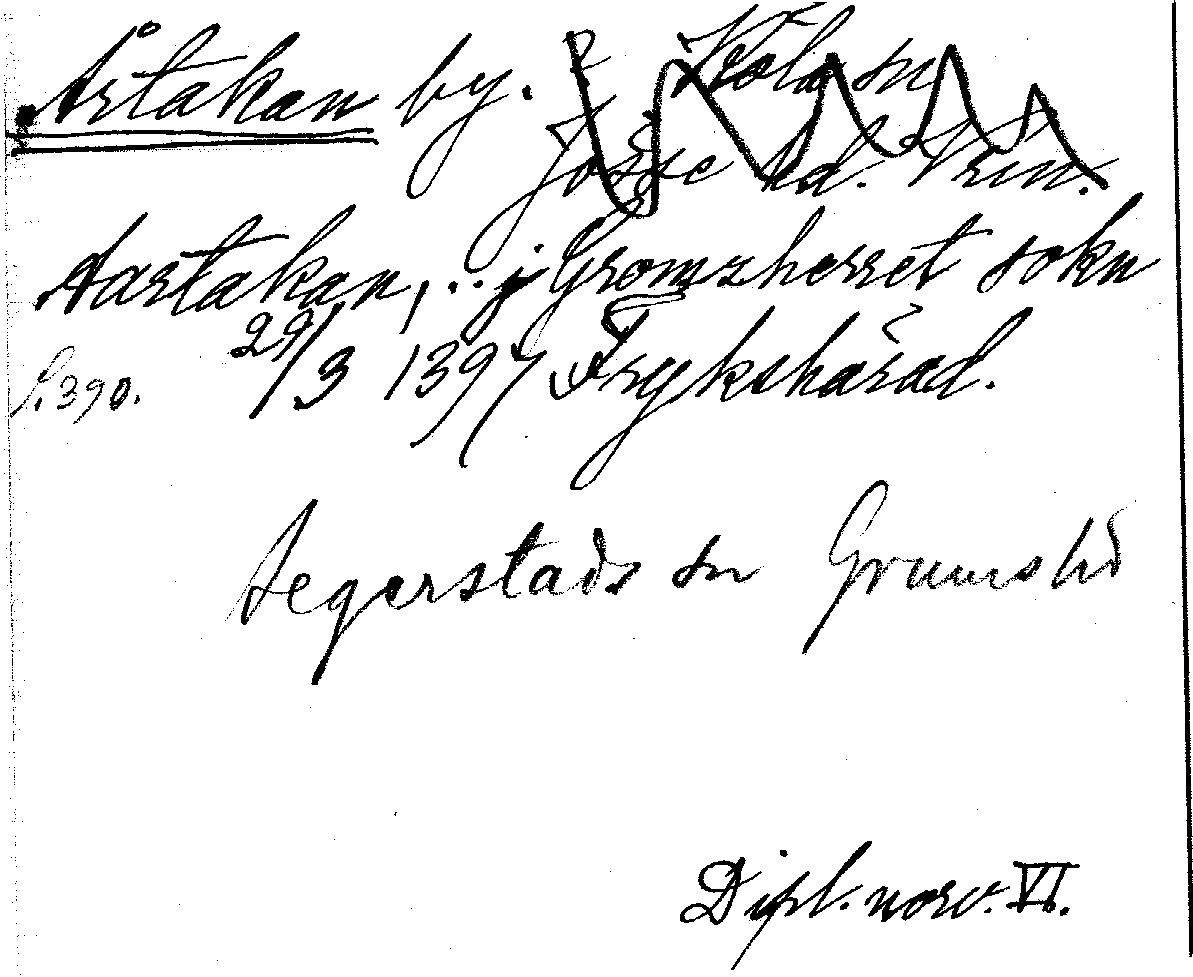 Årtakan by. ? Köla sn
Jösse hd. Vrm.
Aartakan, . . j Gromzherret sokn
S. 390. 29/3 1397 Frykshärad.
Segerstads sn Grums hd
Dipl. norv. VI.